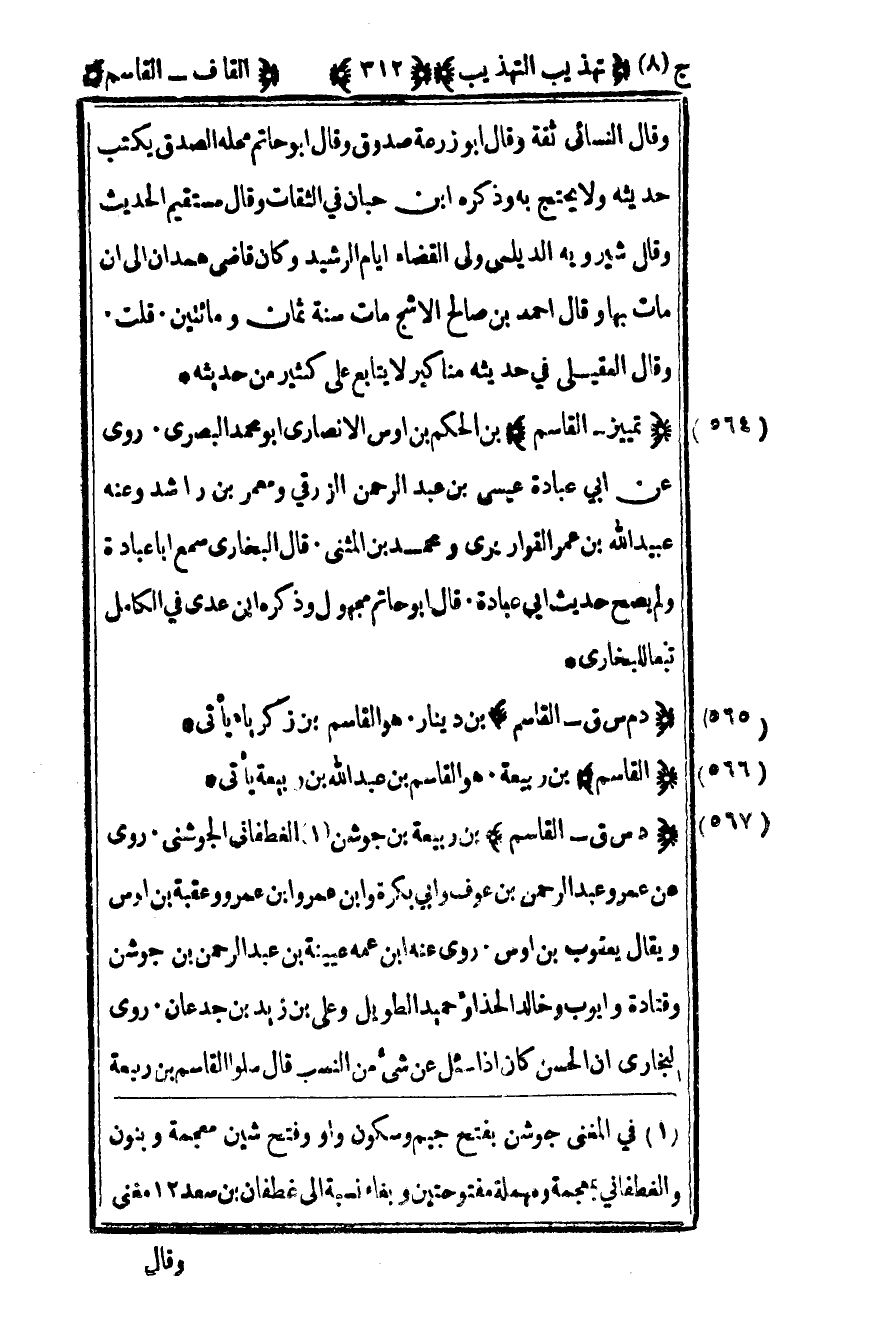 ج (٨) ﴿ تهذيب التهذيب ﴾ ﴿ ٣١٢ ﴾ ﴿ القاف ـ القاسم ﴾
وقال النسائى ثقة وقال ابو زرعة صدوق وقال ابو حاتم محله الصدق يكتب
حديثه ولا يحتج به وذكره ابن حبان في الثقات وقال مستقيم الحديث
وقال شيرويه الديلمى ولى القضاء ايام الرشيد وكان قاضى همدان الى ان
مات بها وقال احمد بن صالح الاشج مات سنة ثمان و مائتين · قلت ·
وقال العقيلى في حديثه مناكير لا يتابع على كثير من حديثه *
(٥٦٤) ﴿ تمييز ـ القاسم ﴾ بن الحكم بن اوس الانصارى ابو محمد البصرى · روى
عن ابي عبادة عيسى بن عبد الرحمن الزرقي ومعمر بن راشد وعنه
عبيد الله بن عمر القواريرى و محمد بن المثنى · قال البخارى سمع ابا عبادة
ولم يصح حديث ابي عبادة · قال ابو حاتم مجهول وذكره ابن عدى في الكامل
تبعا للبخارى *
(٥٦٥) ﴿ د م س ق ـ القاسم ﴾ بن دينار · هو القاسم بن زكرياء يأتى *
(٥٦٦) ﴿ القاسم ﴾ بن ربيعة · هو القاسم بن عبد الله بن ربيعة يأتى *
(٥٦٧) ﴿ د س ق ـ القاسم ﴾ بن ربيعة بن جوشن (١) الغطفانى الجوشنى · روى
عن عمرو عبد الرحمن بن عوف وابي بكرة وابن عمرو ابن عمرو وعقبة بن اوس
ويقال يعقوب بن اوس · روى عنه ابن عمه عيينة بن عبد الرحمن بن جوشن
وقتادة وايوب وخالد الحذاء وحميد الطويل وعلى بن زيد بن جدعان · روى
البخارى ان الحسن كان اذا سئل عن شئ من النسب قال سلوا القاسم بن ربيعة
(١) في المغنى جوشن بفتح جيم وسكون واو وفتح شين معجمة و بنون
والغطفاني بمعجمة ومهملة مفتوحتين و بفاء نسبة الى غطفان بن سعد ١٢ مغنى
وقال